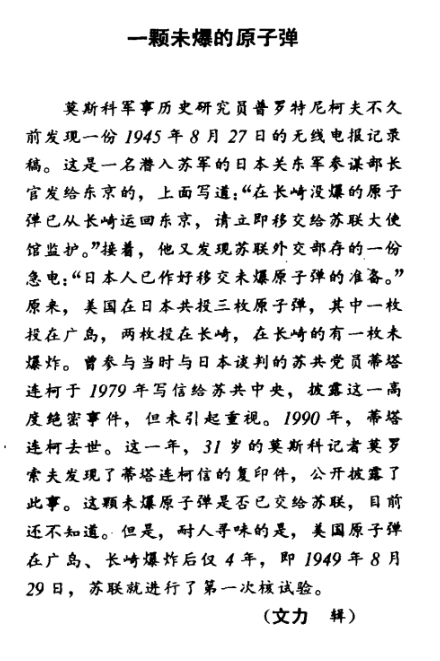 一颗未爆的原子弹
莫斯科军事历史研究员普罗特尼柯夫不久
前发现一份1945年8月27日的无线电报记录
稿。这是一名潜入苏军的日本关东军参谋部长
官发给东京的，上面写道：“在长崎没爆的原子
弹已从长崎运回东京，请立即移交给苏联大使
馆监护。”接着，他又发现苏联外交部存的一份
急电：“日本人已作好移交未爆原子弹的准备。”
原来，美国在日本共投三枚原子弹，其中一枚
投在广岛，两枚投在长崎，在长崎的有一枚未
爆炸。曾参与当时与日本谈判的苏共党员蒂塔
连柯于1979年写信给苏共中央，披露这一高
度绝密事件，但未引起重视。1990年，蒂塔
连柯去世。这一年，31岁的莫斯科记者莫罗
索夫发现了蒂塔连柯信的复印件，公开披露了
此事。这颗未爆原子弹是否已交给苏联，目前
还不知道。但是，耐人寻味的是，美国原子弹
在广岛、长崎爆炸后仅4年，即1949年8月
29日，苏联就进行了第一次核试验。
（文力 辑）